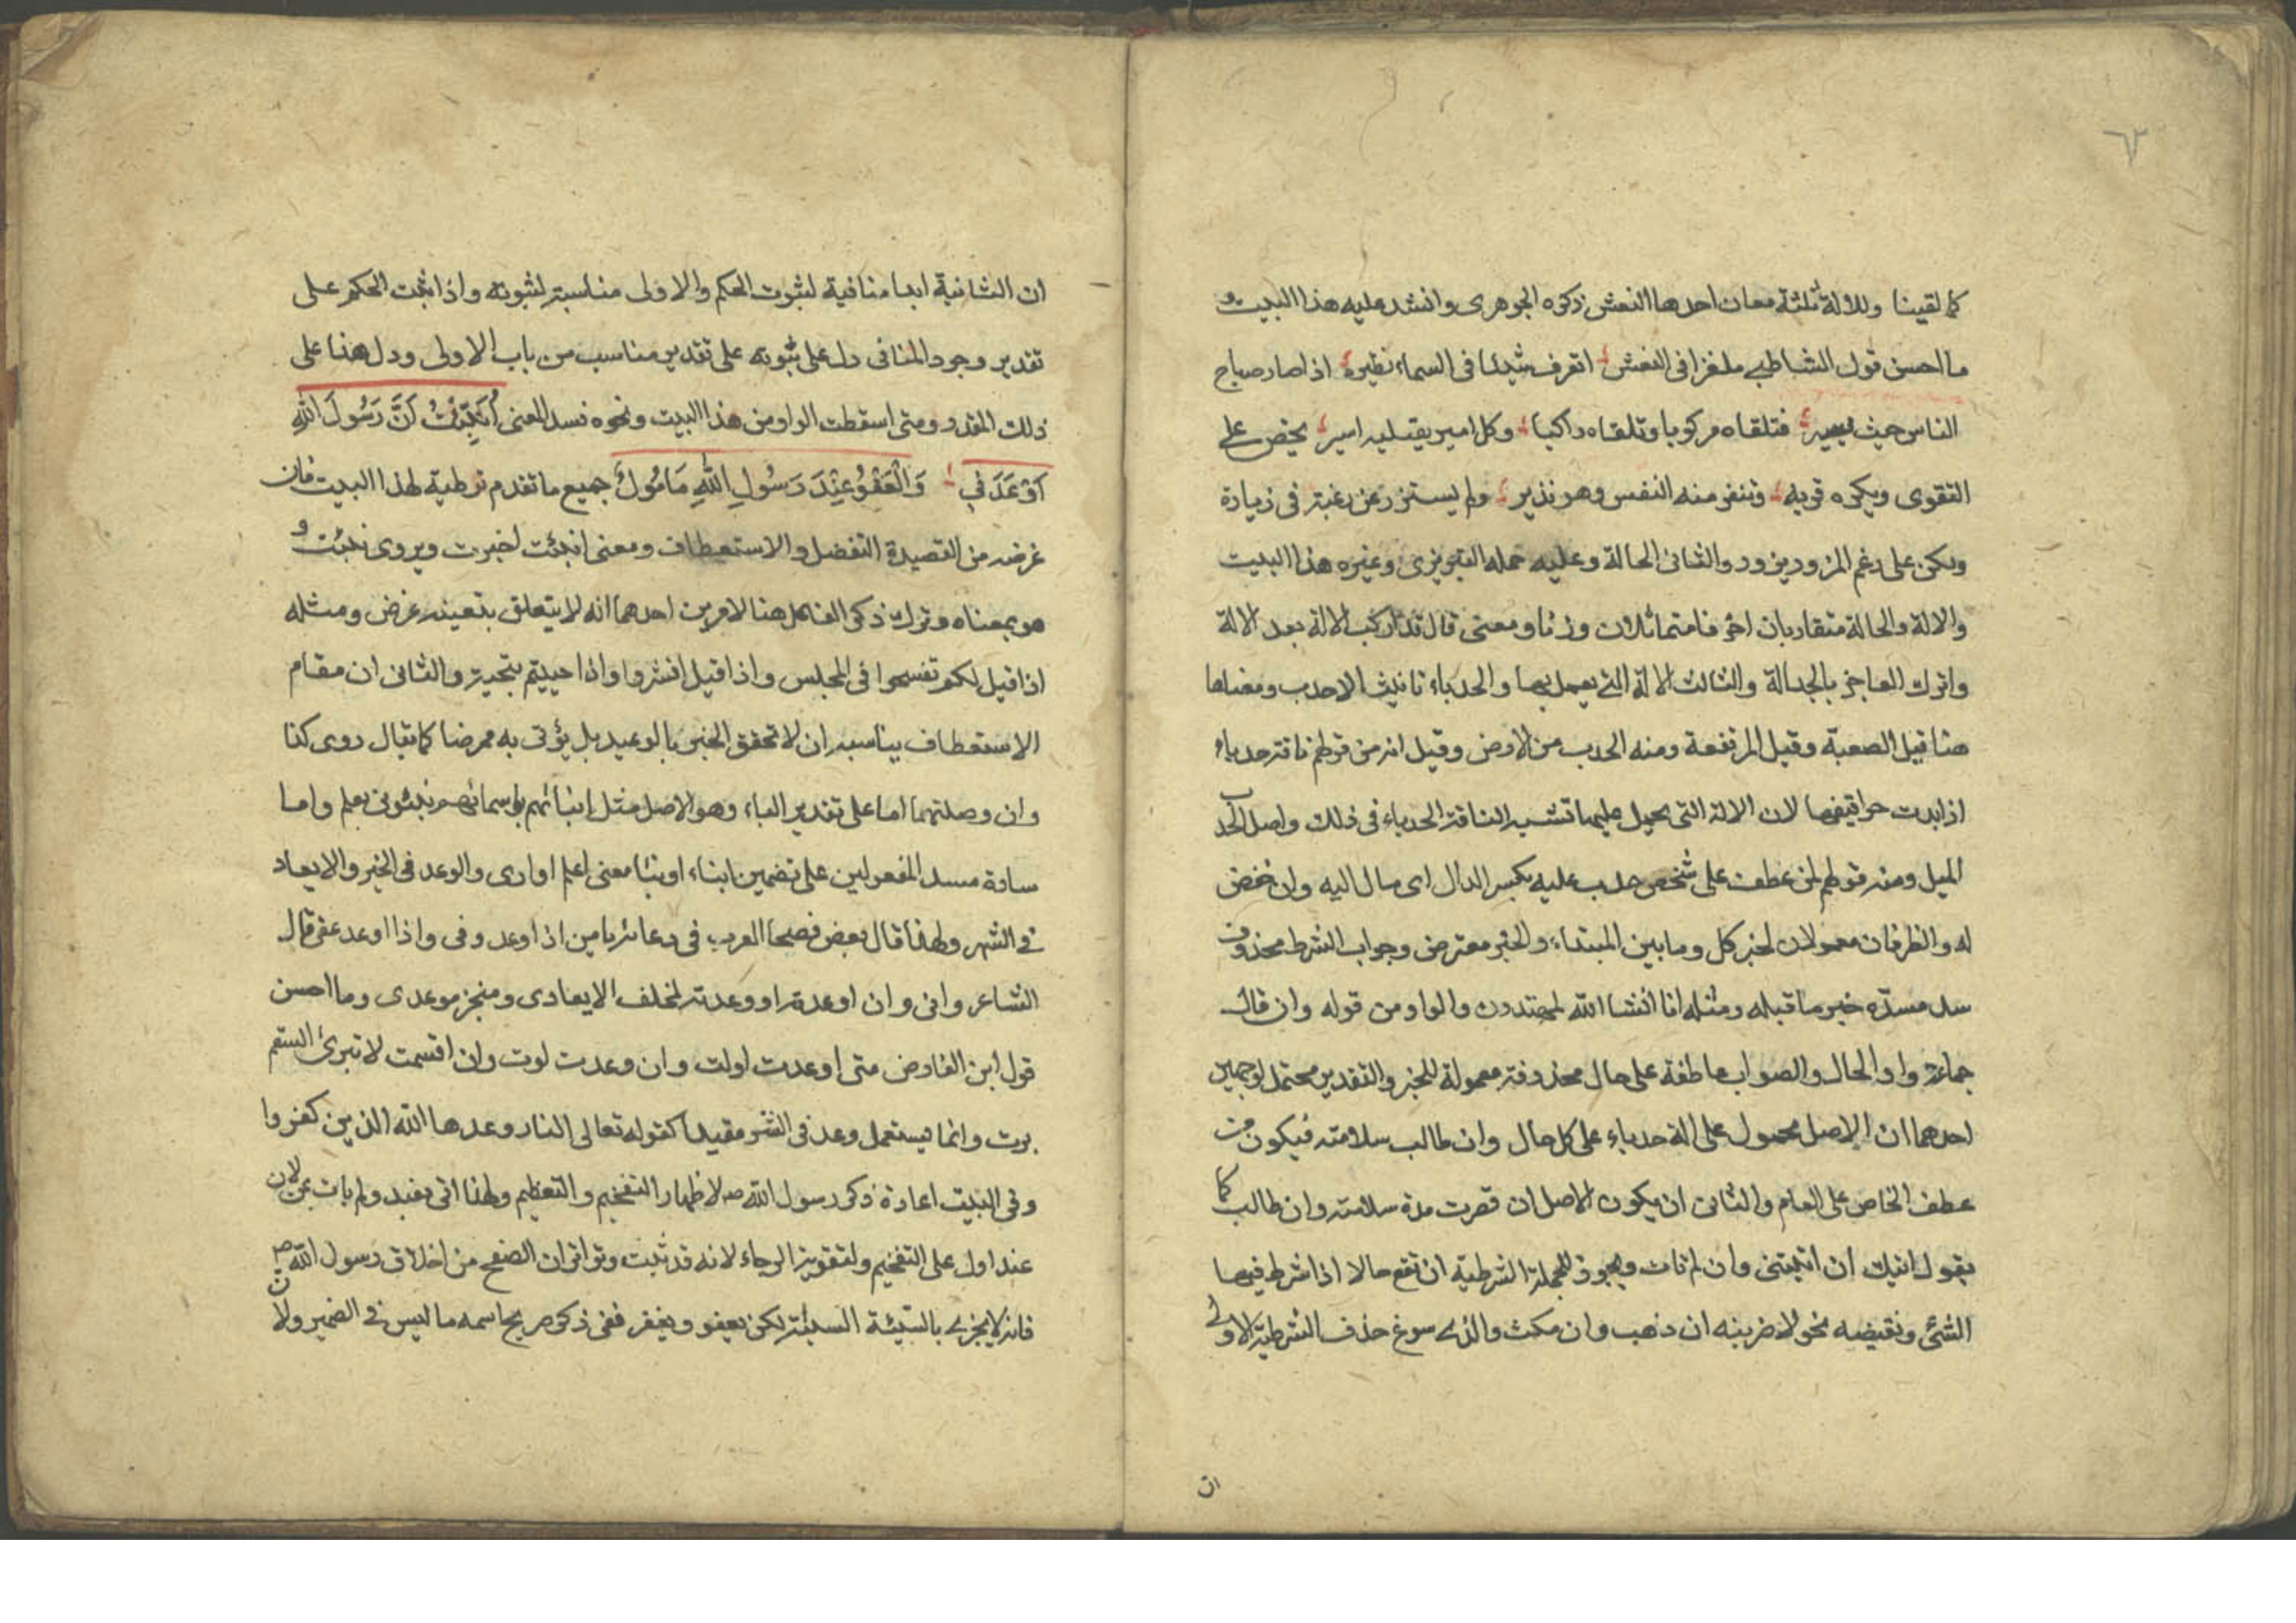 ٦٣
كما لقينا وللالة ثلثة معان احدها النعش ذكره الجوهرى وانشد عليه هذا البيت و
ما احسن قول الشاطبي ملغزا فى النعش اتعرف شيئا فى السماء نظيره اذا صار صباح
الناس حيث يسير فتلقاه مركوبا وتلقاه راكبا وكل امير يعتليه اسير يحض على
التقوى ويكره قربه وتنفر منه النفس وهو نذير ولم يستزر عن رغبة فى زيارة
ولكن على رغم المزور يزور والثانى الحالة وعليه حمله التبريزى وغيره هذا البيت
والالة والحالة متقاربان احرفا متماثلان وزنا ومعنى قال قد اركب الالة بعد الالة
واترك العاجز بالجدالة والثالث الالة التى يعمل بها والحدباء تانيث الاحدب ومعناها
هنا قيل الصعبة وقيل المرتفعة ومنه الحدب من الارض وقيل انه من قولهم ناقة حدباء
اذا بدت حراقيفها لان الالة التى يحمل عليها تشبه الناقة الحدباء فى ذلك واصل الحدب
الميل ومنه قولهم لمن عطف على شخص حدب عليه بكسر الدال اى مال اليه وان خفض
له والظرفان معمولان لخبر كل وما بين المبتداء والخبر معترض وجواب الشرط محذوف
سد مسدّه خبر ما قبله ومثله انا انشا الله لمهتدون والواو من قوله وان قال
جماعة واو الحال والصواب عاطفة على حال محذوفة معمولة للخبر والتقدير محتمل لوجهين
احدهما ان الاصل محمول على الة حدباء على كل حال وان طالت سلامته فيكون من
عطف الخاص على العام والثانى ان يكون الاصل ان قصرت مدة سلامته وان طالت كما
يقول اتيك ان اتيتنى وان لم تات ويجوز للجملة الشرطية ان تقع حالا اذا شرط فيها
الشئ ونقيضه نحو لاضربنه ان ذهب وان مكث والذى سوغ حذف الشرطية الاولى
ان
ان الثانية ابدا منافية لثبوت الحكم والاولى مناسبة لثبوته واذا ثبت الحكم على
تقدير وجود المنافى دل على ثبوته على تقدير مناسب من باب الاولى ودل هذا على
ذلك المقدر ومتى اسقطت الواو من هذا البيت ونحوه فسد المعنى أُنْبِئْتُ أَنَّ رَسُولَ اللهِ
أَوْعَدَنِي وَالْعَفْوُ عِنْدَ رَسُولِ اللهِ مَأْمُولُ جميع ما تقدم توطية لهذا البيت فان
غرضه من القصيدة التفضل والاستعطاف ومعنى انبئت اخبرت ويروى نبئت و
هو بمعناه وترك ذكر الفاعل هنا لامرين احدهما انه لا يتعلق بتعيينه غرض ومثله
اذا قيل لكم تفسحوا فى المجلس واذا قيل انشزوا واذا حييتم بتحية والثانى ان مقام
الاستعطاف يناسبه ان لا تحقق الخبر بالوعيد بل يؤتى به ممرضا كما يقال روى كذا
وان وصلتهما اما على تقدير الباء وهو الاصل مثل انبائهم باسمائهم نبئونى بعلم واما
سادة مسد المفعولين على تضمين انباء او نبا معنى اعلم او ارى والوعد فى الخير والايعاد
فى الشر ولهذا قال بعض فصحا العرب فى دعائه يا من اذا وعد وفى واذا اوعد عفى قال
الشاعر وانى وان اوعدته او وعدته لمخلف الايعادى ومنجز موعدى وما احسن
قول ابن الفارض متى اوعدت اولت وان وعدت لوت وان اقسمت لا تبرئ السقم
برت وانما يستعمل وعد فى الشر مقيدا كقوله تعالى النار وعدها الله الذين كفروا
وفى البيت اعادة ذكر رسول الله صه لاظهار التفخيم والتعظيم ولهذا اتى بعند ولم يات بمن لان
عند اول على التفخيم ولتقوية الرجاء لانه قد ثبت وتواتر ان الصفح من اخلاق رسول الله ص
فانه لا يجزى بالسّيئة السيئة لكن يعفو ويغفر ففى ذكر صريح اسمه ما ليس فى الضمير ولان